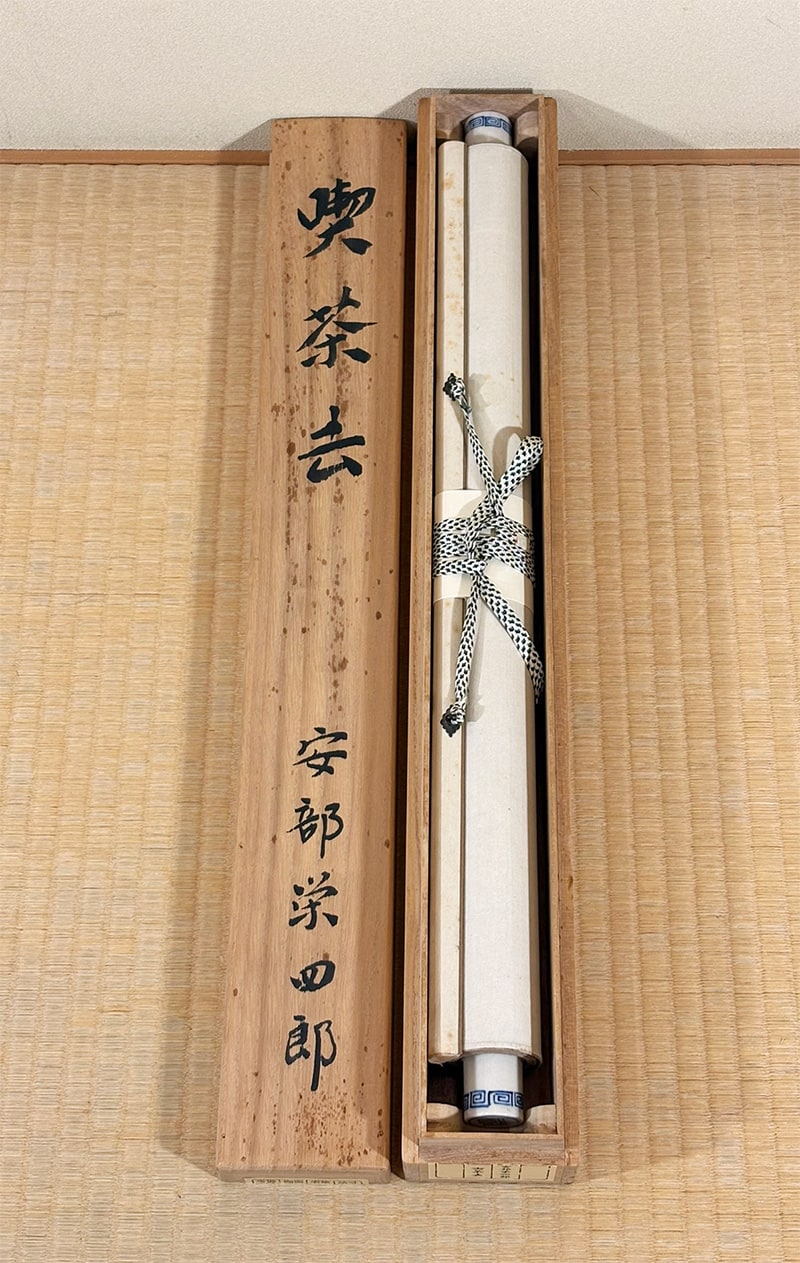 喫茶去
安部栄四郎